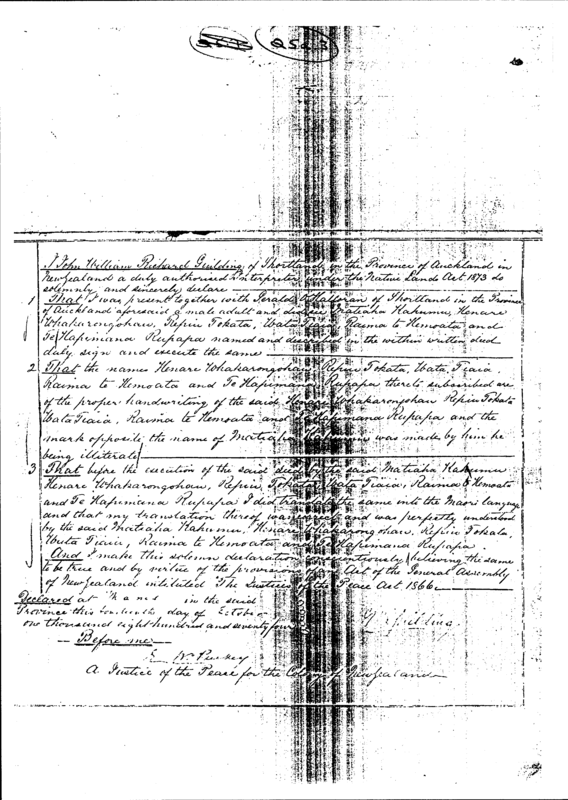 2523
I John William Richard Guilding of Shortland in the Province of Auckland in
New Zealand a duly authorised Interpreter under the Native Land Act 1873 do
solemnly and sincerely declare
1 That I was present together with Gerald O'Halloran of Shortland in the Province
of Auckland aforesaid a male adult and did see Matiaha Kahumu, Henare
Whakarongohau, Repiu Tokata, Wata Tiaia, Raima te Hemoata and
Te Hapimana Rupapa named and described in the within written deed
duly sign and execute the same
2 That the names Henare Whakarongohau, Repiu Tokata, Wata Tiaia,
Raima te Hemoata and Te Hapimana Rupapa thereto subscribed are
of the proper handwriting of the said Henare Whakarongohau Repiu Tokata
Wata Tiaia, Raima te Hemoata and Te Hapimana Rupapa and the
mark opposite the name of Matiaha Kahumu was made by him he
being illiterate
3 That before the execution of the said deed by the said Matiaha Kahumu
Henare Whakarongohau, Repiu Tokata, Wata Tiaia, Raima te Hemoata
and Te Hapimana Rupapa I did translate the same into the Maori language
and that my translation thereof was and was perfectly understood
by the said Matiaha Kahumu, Henare Whakarongohau, Repiu Tokata,
Wata Tiaia, Raima te Hemoata and Te Hapimana Rupapa.
And I make this solemn declaration conscientiously believing the same
to be true and by virtue of the provisions of an Act of the General Assembly
of New Zealand intituled "The Justices of the Peace Act 1866"
Declared at Thames in the said
Province this day of October
one thousand eight hundred and seventy four
Guilding
Before me
A Justice of the Peace for the Colony of New Zealand